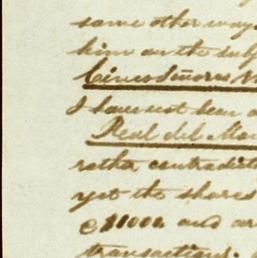 some other way
him on the sub
Cinco Señores M
I have not been a
Real del Mon
rather contradict
yet the shares
$1000 and ar
transactions.